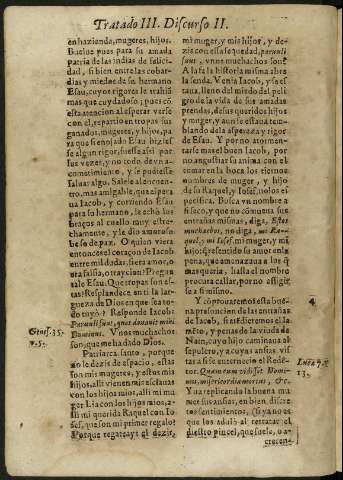 Tratado III. Discurso II.
en hazienda, mugeres, hijos.
Buelue pues para su amada
patria de las Indias de felicidad,
si bien entre las cobardias
y miedos de su hermano
Esau, cuyos rigores le trahiã
mas que cuydadoso; pues cõ
esta atencion al esperar verse
con el, repartio en tropas sus
ganados, mugeres, y hijos, para
que si enojado Esau hiziesse
algun rigor, fuesse assi por
sus vezes, y no todo de vn acometimiento,
y se pudiesse
saluar algo. Salele al encuentro,
mas amigable, que espera
ua Iacob, y corriendo Esau
para su hermano, le echò los
braços al cuello muy estrechamente,
y le dio amoroso
beso de paz. O quien viera
entonces el coraçon de Iacob
entre mil dudas, si era amor, o
era falsa, o traycion! Preguntale
Esau. Que tropas son estas?
Respondele: en ti la largueza
de Dios en que sea todo
tuyo? Responde Iacob:
Paruuli sunt, quos donauit mihi
Dominus. Vnos muchachos
son, que me ha dado Dios.
Patriarca santo, porque
no le dezis de espacio, estas
son mis mugeres, y estos mis
hijos, alli vienen mis esclauas
con los hijos mios, alli mi muger
Lia con los hijos mios, alli
mi querida Raquel con Iosef,
que son mi primer regalo?
Porque regateays el dezir,
Genes. 35.
v. 5.
mi muger, y mis hijos, y dezis
con essa sequedad, paruuli
sunt, vnos muchachos son?
A la fè la historia misma abre
la senda. Venia Iacob, y se estaua,
lleno del miedo del peligro
de la vida de sus amadas
prendas, de sus queridos hijos
y muger, y aun se estaua temblando
de la aspereza y rigor
de Esau. Y por no atormentarse
mas el buen Iacob, por
no angustiar su anima con el
tomar en la boca los tiernos
nombres de muger, y hijo
de su Raquel, y Iosef, no los especifica.
Busca vn nombre a
si seco, y que no cõmueua sus
entrañas mismas, diga, Estos
muchachos, no diga, mi Raquel,
y mi Iosef, mi muger, y mi
hijo: q̃ resentido su amor en la
pena, que amenazaua a los q̃
mas queria, hasta el nombre
procura callar, por no afligirse
a si mismo.
Y cõprouaremos esta buena
presuncion de las entrañas de
Iacob, si atẽdieremos el llanto,
y penas de la viuda de
Nain, cuyo hijo caminaua el
sepulcro, y a cuyas ansias vistas
assi se enternecio el Redẽtor.
Quam cum vidisset Dominus,
misericordia motus, &c.
Y ua replicando la buena muger
sus ansias, en bien discretos
sentimientos, (si ya no es
que los adulò al retratar el
diestro pincel, que suele, o acrecen-
4
Luc. 7. v.
13.